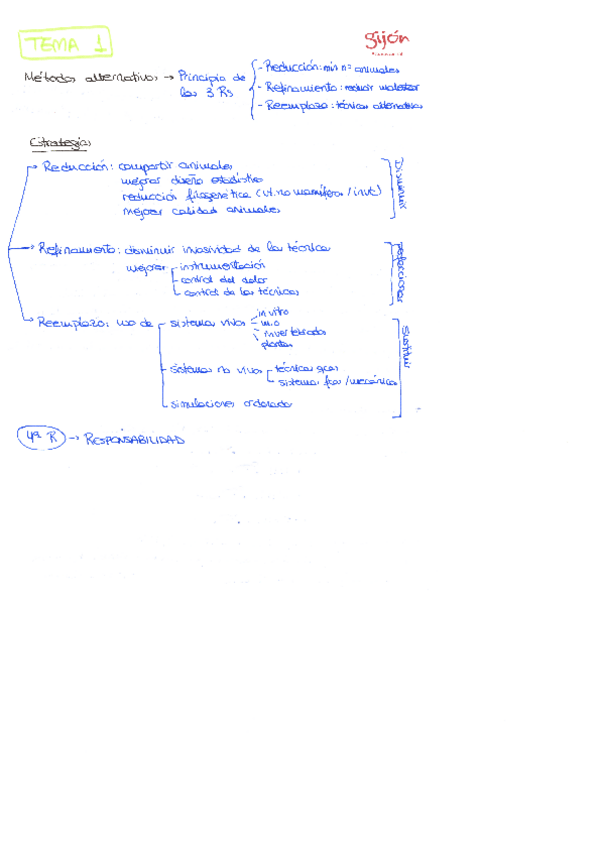 TEMA 1
Gijón
Métodos alternativos → Principio de las 3 Rs
- Reducción: mín nº animales
- Refinamiento: reducir malestar
- Reemplazo: técnicas alternativas
Estrategias
Reducción: compartir animales
mejorar diseño estadístico
reducción filogenética (vt. no mamíferos / invt)
mejorar calidad animales
Disminuir
Refinamiento: disminuir invasividad de las técnicas
mejorar instrumentación
control del dolor
control de las técnicas
Perfeccionar
Reemplazo: uso de sistemas vivos
in vitro
m.o
invertebrados
plantas
sistemas no vivos
técnicas qcas
sistemas fcos / mecánicos
simulaciones ordenador
Sustituir
4ª R → RESPONSABILIDAD